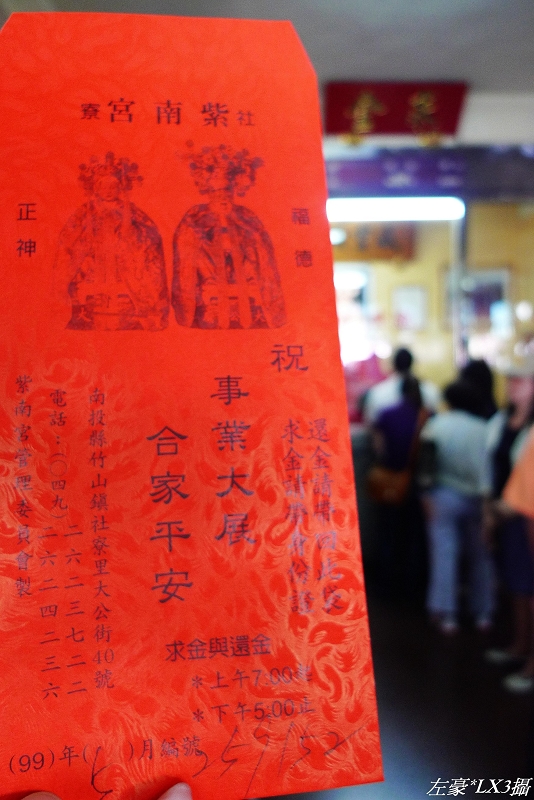 社紫南宮寮
福德
正神
祝
事業大展
合家平安
還金請
求金請
南投縣竹山鎮社寮里大公街40號
電話:(〇四九)二六二三七二二
二六二四二三六
紫南宮管理委員會製
求金與還金
*上午7:00起
*下午5:00止
(99)年( )月編號
左豪*LX3攝